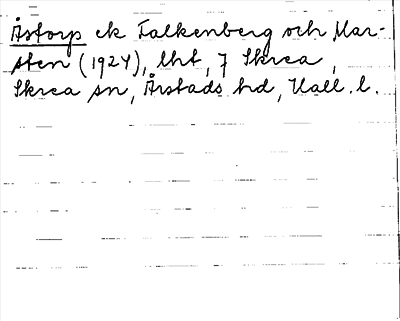 Åstorp ek Falkenberg och Mar-
sten (1924), lht, 7 Skrea,
Skrea sn, Årstads hd, Hall. l.